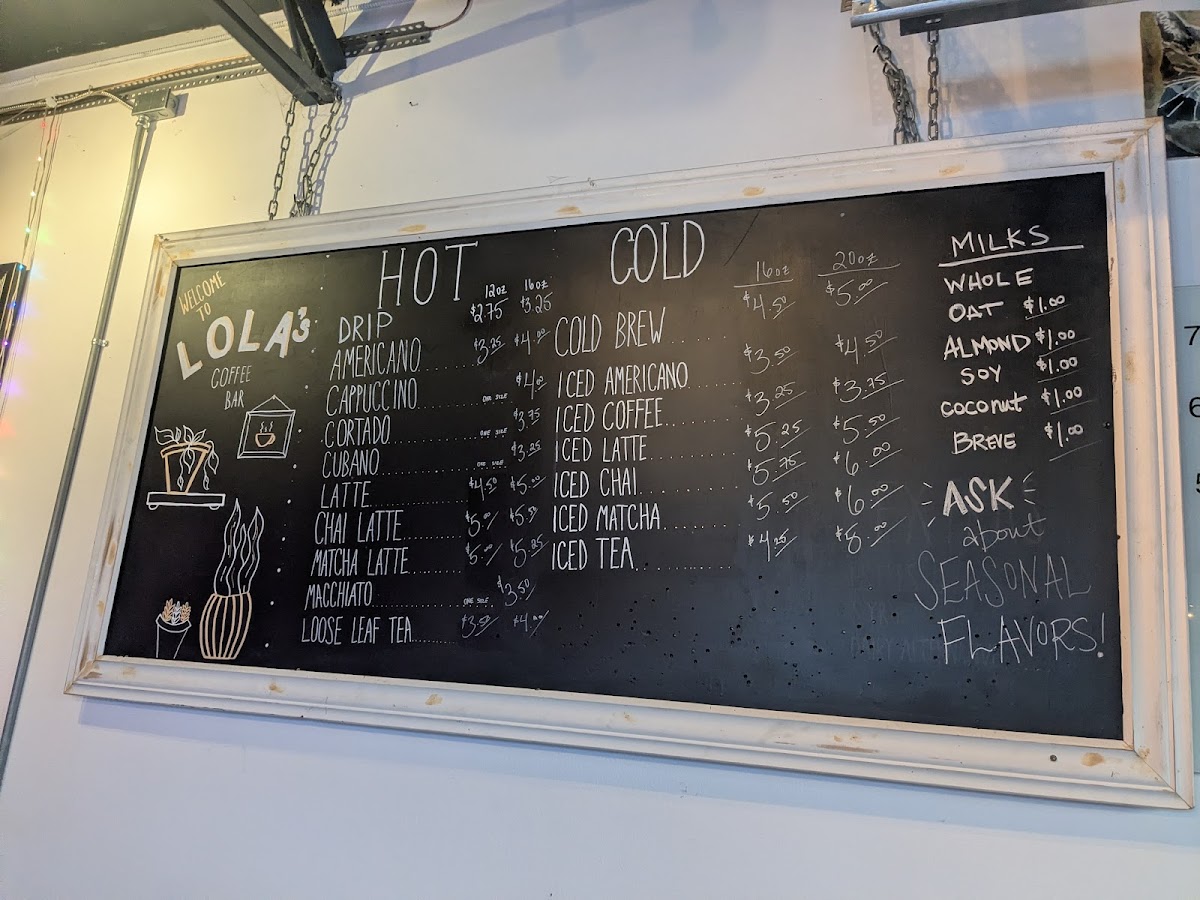 WELCOME
TO
LOLA's
COFFEE
BAR
HOT
12oz 16oz
DRIP $2.75 $3.25
AMERICANO........ $3.25 $4.00
CAPPUCCINO........ ONE SIZE $4.00
CORTADO........ ONE SIZE $3.75
CUBANO........ ONE SIZE $3.25
LATTE........ $4.50 $5.00
CHAI LATTE........ $5.50
MATCHA LATTE........ $5.00 $5.25
MACCHIATO........ ONE SIZE $3.50
LOOSE LEAF TEA...... $3.50 $4.00
COLD
16oz 20oz
COLD BREW...... $4.50 $5.00
ICED AMERICANO...... $3.50 $4.50
ICED COFFEE........ $3.25 $3.75
ICED LATTE........ $5.25 $5.50
ICED CHAI........ $5.75 $6.00
ICED MATCHA........ $5.50 $6.00
ICED TEA........ $4.25
MILKS
WHOLE
OAT $1.00
ALMOND $1.00
SOY $1.00
COCONUT $1.00
BREVE $1.00
ASK
about
SEASONAL
FLAVORS!